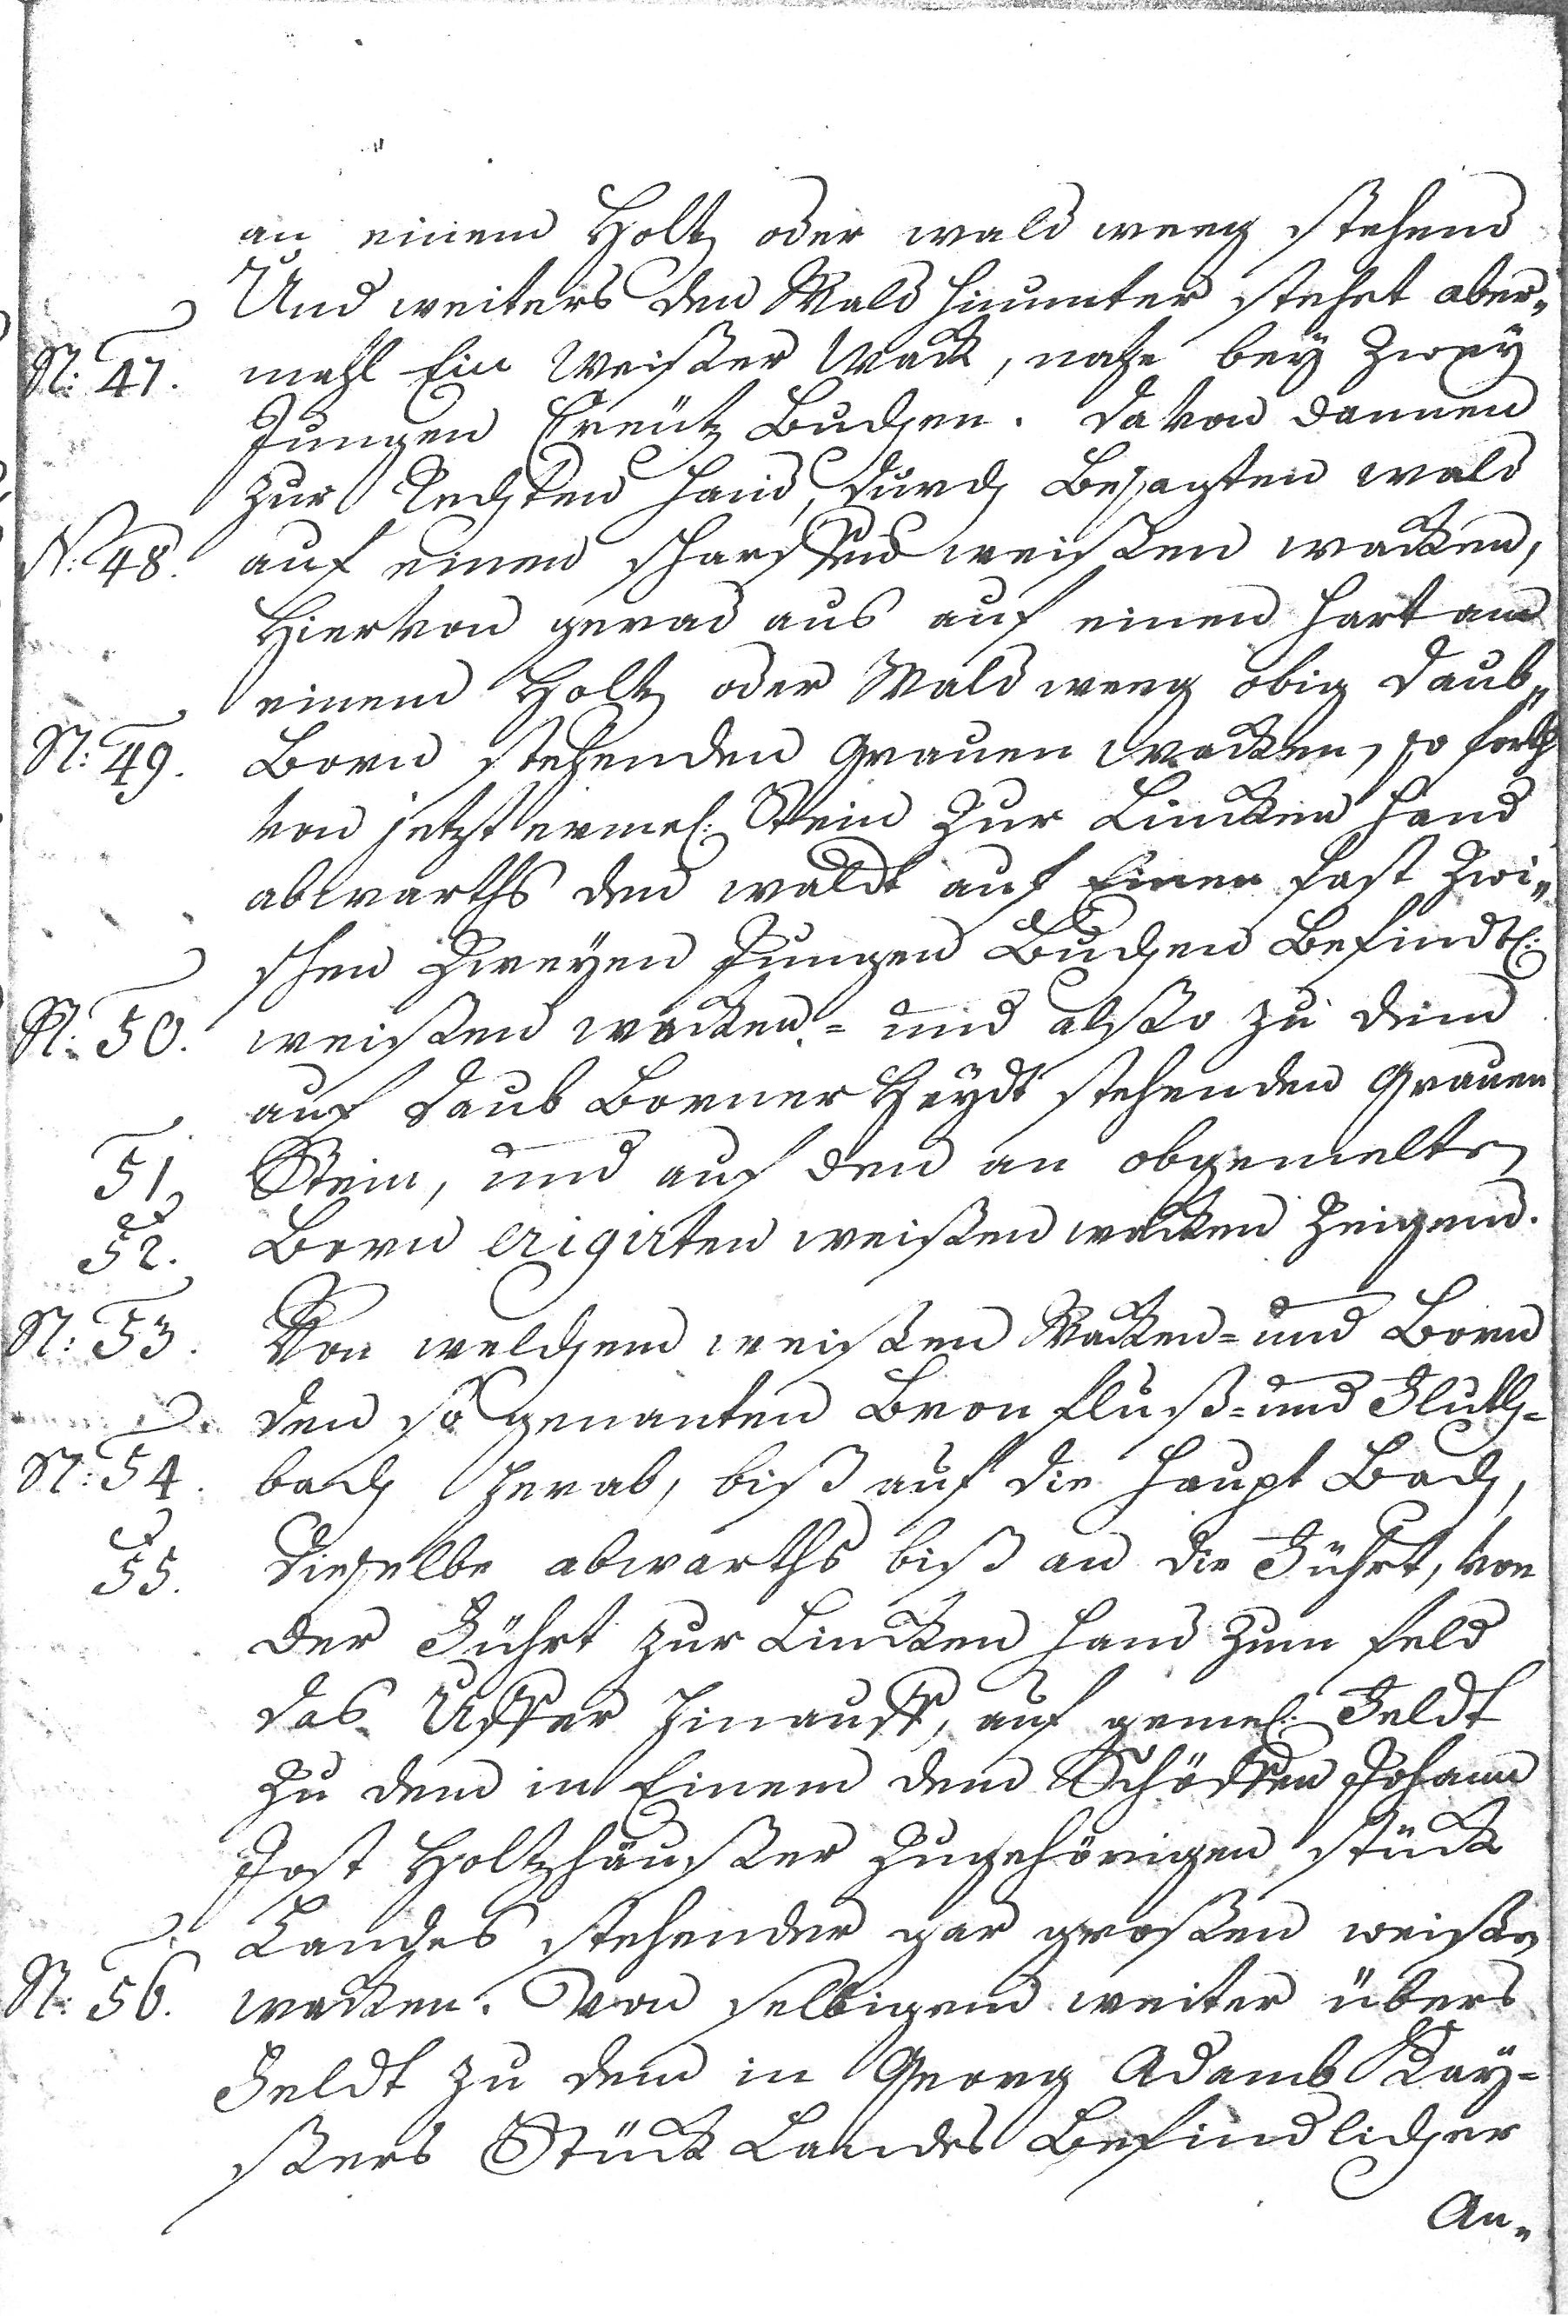 an einem Holtz oder wald weeg stehend
Und weiters den Wald hinunter stehet aber„
N: 47. mahl Ein Weißer Wack, nahe bey Zwey
Jungen Creütz Buchen. Da von dannen
zur Rechten Hand, durch Besagten wald
N: 48. auf einen scharffen weißen wacken,
Hiervon gerad aus auf einen hart an
einem Holtz oder Wald weeg obig Daub„
N: 49. Born stehenden Grauen wacken, so forth
von jetzt ermel: Stein Zur Lincken Hand
abwarths den waldt auf Einen fast Zwi„
schen Zweyen Jungen Buchen Befindl:
N: 50. weißen wacken = und alßo zu dem
auf Daub Borner Heydt stehenden Grauen
51 Stein, und auf den an obgemelten
et
52. Born erigirten weißen wacken Zeigend.
N: 53. Von welchem weißen Wacken = und Born
den so genanten Born fluß = und Fluth=
N: 54. bach herab, biß auf die Haupt Bach,
et
55. Dieselbe abwarths biß an die Führt, von
der Führt zur Lincken Hand zum feld
das Uffer hinauff, auf gemel: Feldt
Zu dem in Einem dem Schöffen Johann
Jost Holtzhäußer Zugehörigen stück
Landes stehender gar großen weißen
N: 56. wacken. Von selbigem weiter übers
Feldt zu dem in Georg Adamb Kay=
ßers Stück Landes Befindlicher
An„